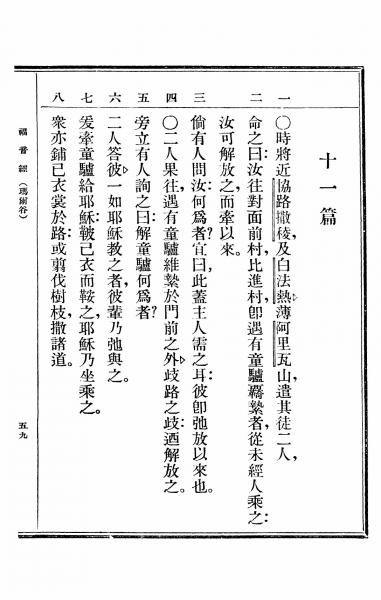 十一篇
一 ○時將近協路撒稜,及白法熱薄阿里瓦山,遣其徒二人,
二 命之曰:汝往對面前村,比進村,卽遇有童驢羈縶者,從未經人乘之:
汝可解放之,而牽以來。
三 倘有人問:汝何爲者?宜曰,此蓋主人需之耳,彼卽弛放以來也。
四 ○二人果往,遇有童驢維縶於門前之外,歧路之歧:迺解放之。
五 旁立有人詢之曰:解童驢何爲者?
六 二人答彼,一如耶穌教之者,彼輩乃弛與之。
七 爰牽童驢給耶穌,鞁己衣而鞍之,耶穌乃坐乘之。
八 衆亦鋪己衣裳於路:或翦伐樹枝,撒諸道。
福音經(瑪爾谷)
五九